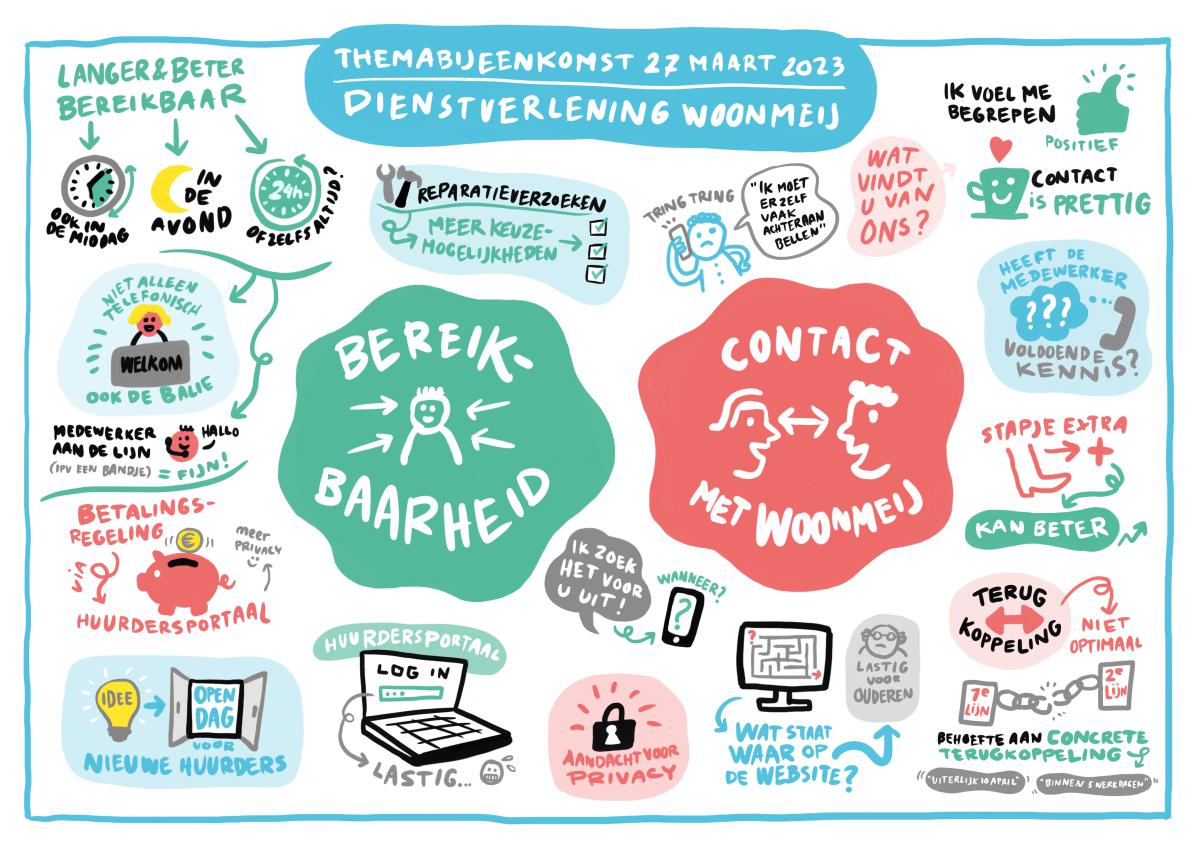 THEMABIJEENKOMST 27 MAART 2023
DIENSTVERLENING WOONMEIJ
LANGER & BETER
BEREIKBAAR
OOK IN
DE MIDDAG
IN
DE
AVOND
24h.
OF ZELFS ALTIJD?
NIET ALLEEN
TELEFONISCH
WELKOM
OOK DE BALIE
MEDEWERKER
AAN DE LIJN
(IPV EEN BANDJE) = FIJN!
HALLO
BETALINGS-
REGELING
€
meer
PRIVACY
VIA
HUURDERSPORTAAL
IDEE
OPEN
DAG
VOOR
NIEUWE HUURDERS
REPARATIEVERZOEKEN
MEER KEUZE-
MOGELIJKHEDEN
BEREIK-
BAARHEID
HUURDERSPORTAAL
LOG IN
LASTIG...
TRING TRING
"IK MOET
ER ZELF
VAAK
ACHTERAAN
BELLEN"
WAT
VINDT
U VAN
ONS?
CONTACT
MET WOONMEIJ
IK ZOEK
HET VOOR
U UIT!
WANNEER?
?
AANDACHT VOOR
PRIVACY
?
WAT STAAT
WAAR OP
DE WEBSITE?
LASTIG
VOOR
OUDEREN
IK VOEL ME
BEGREPEN
POSITIEF
CONTACT
iS PRETTIG
HEEFT DE
MEDEWERKER
???
VOLDOENDE
KENNIS?
STAPJE EXTRA
+
KAN BETER
TERUG
KOPPELING
NIET
OPTIMAAL
1e
LIJN
2e
LIJN
BEHOEFTE AAN CONCRETE
TERUGKOPPELING
"UITERLIJK 10 APRIL"
"BINNEN 5 WERKDAGEN"